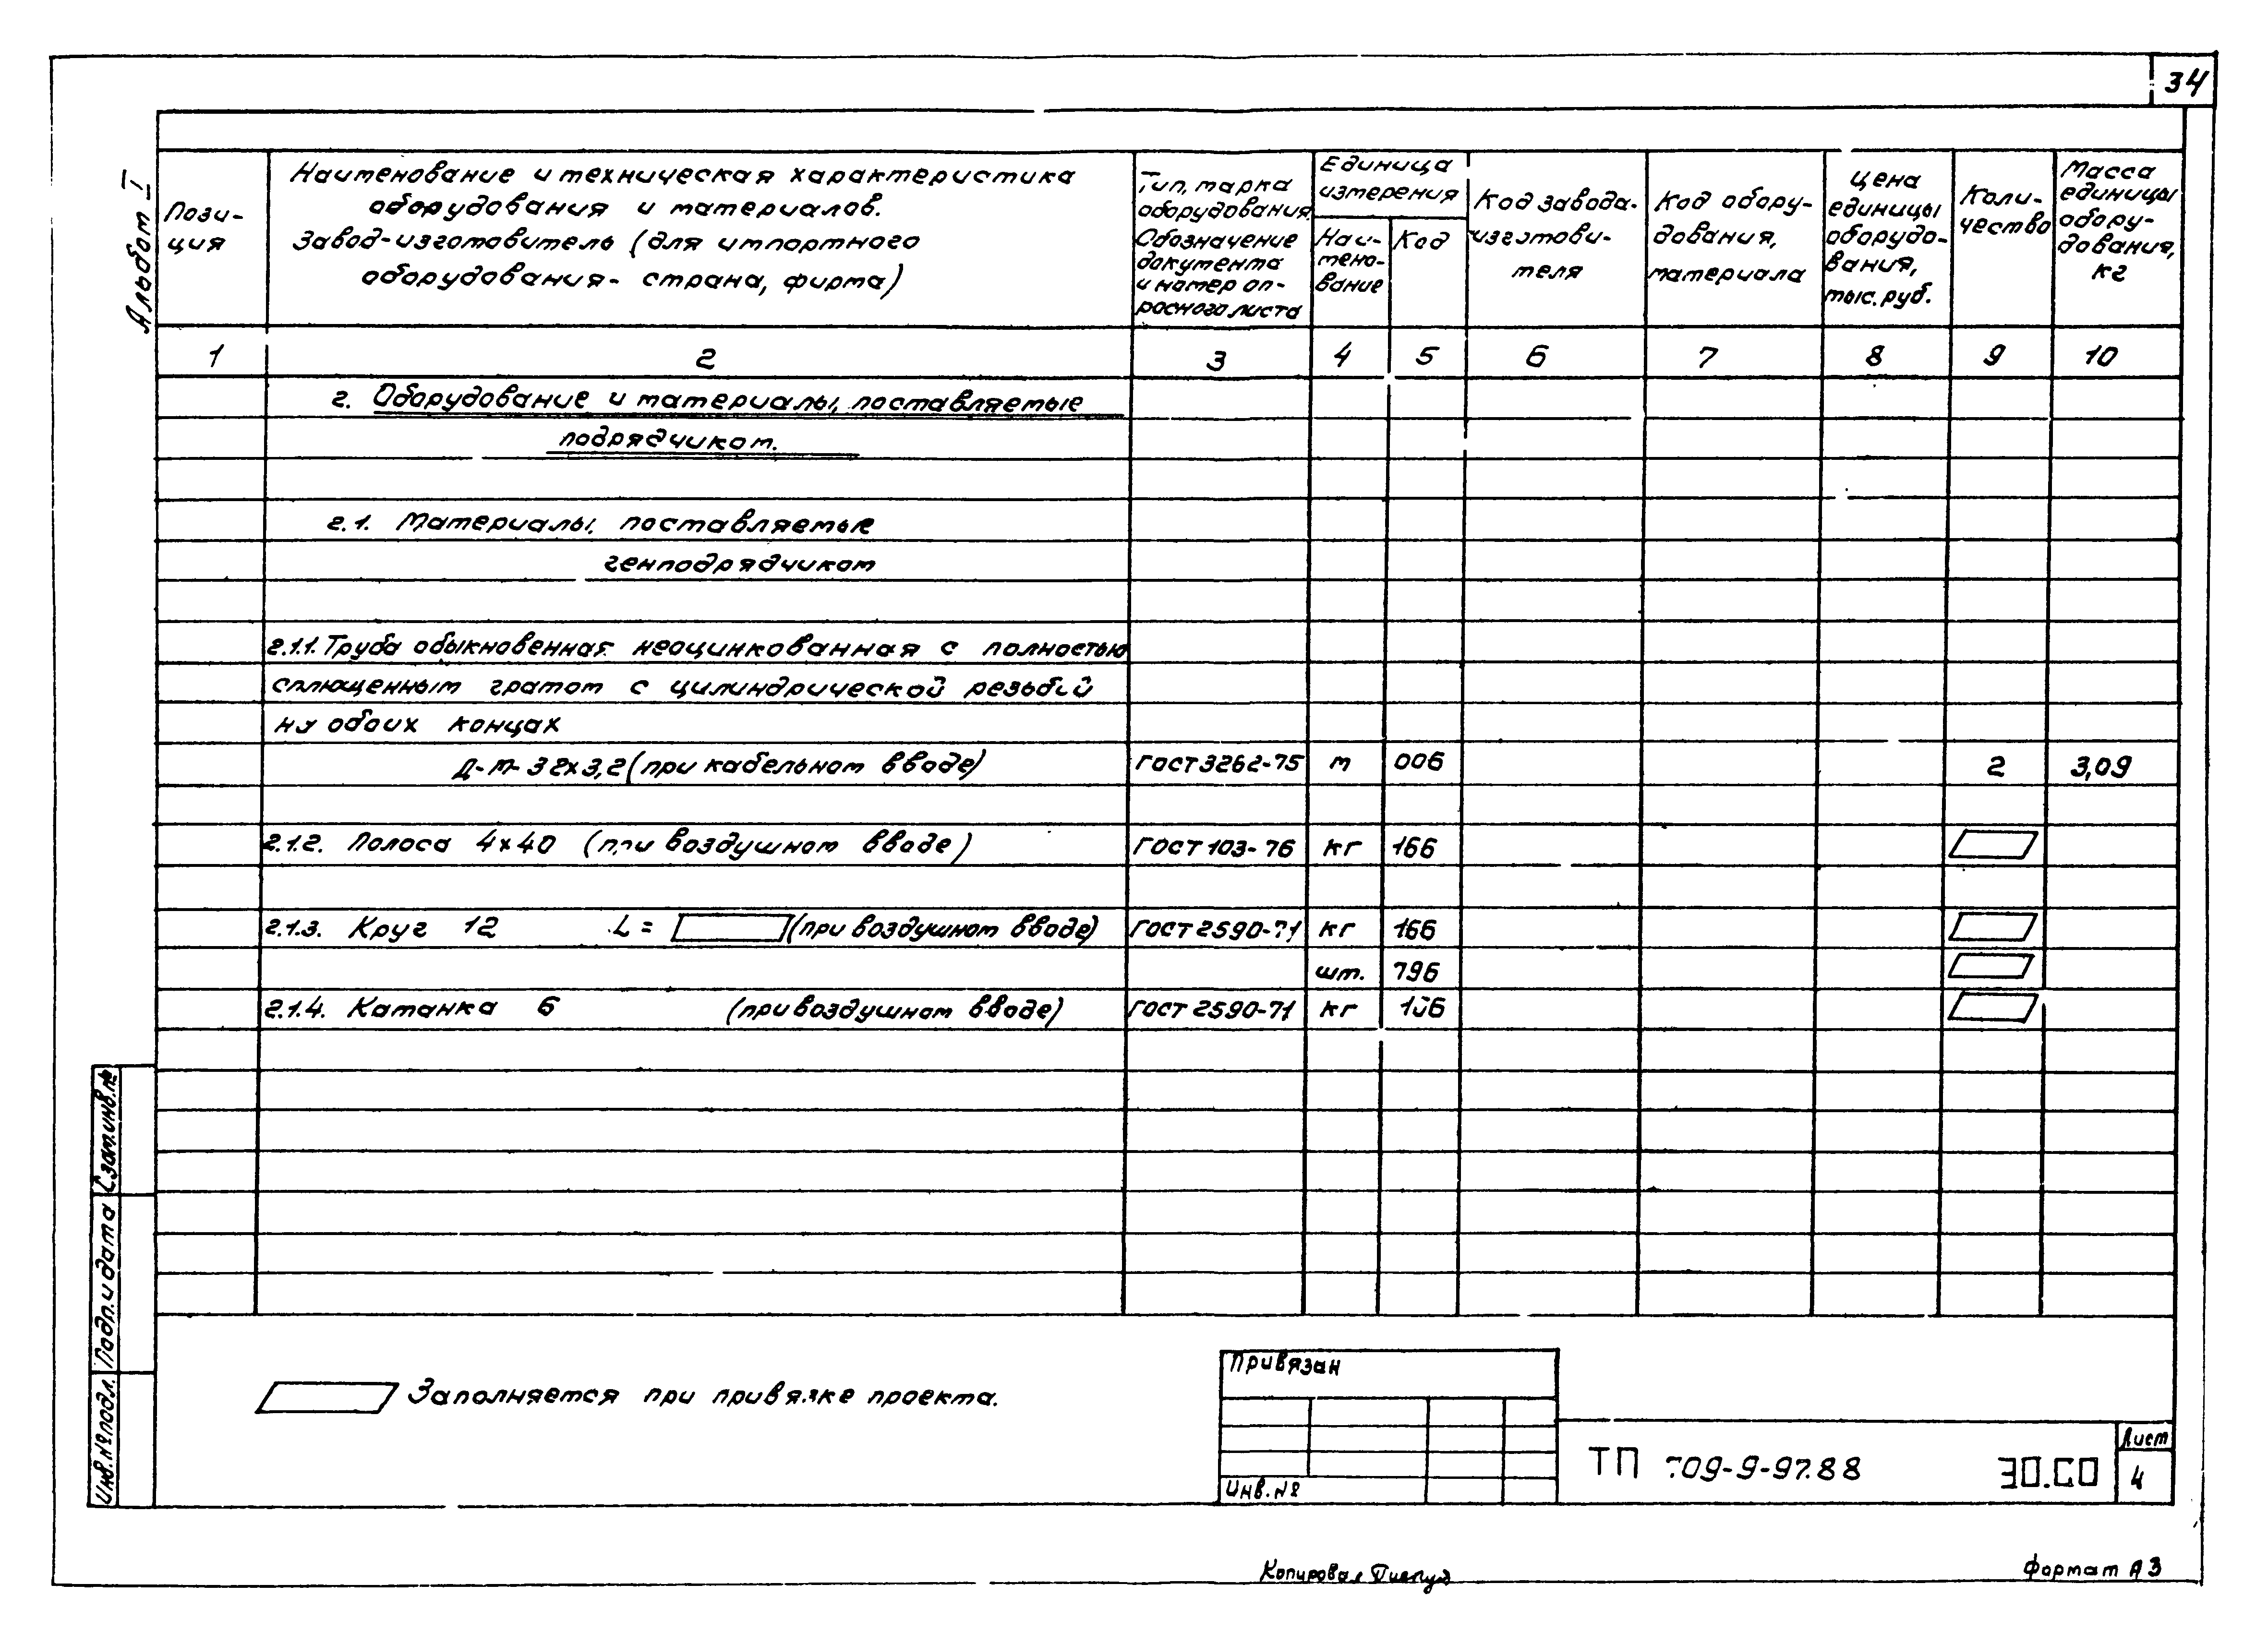 34
Альбом I
Пози-
ция
Наименование и техническая характеристика
оборудования и материалов.
Завод-изготовитель (для импортного
оборудования- страна, фирма)
Тип, марка
оборудования.
Обозначение
документа
и номер оп-
росного листа
Единица
измерения
Наи-
мено-
вание
Код
Код завода-
изготови-
теля
Код обору-
дования,
материала
Цена
единицы
оборудо-
вания,
тыс. руб.
Коли-
чество
Масса
единицы
обору-
дования,
кг
1 2 3 4 5 6 7 8 9 10
2. Оборудование и материалы, поставляемые
подрядчиком.
2.1. Материалы, поставляемые
генподрядчиком
2.1.1. Труба обыкновенная неоцинкованная с полностью
сплющенным гратом с цилиндрической резьбой
на обоих концах
Д-м-32х3,2 (при кабельном вводе) ГОСТ 3262-75 м 006 2 3,09
2.1.2. Полоса 4х40 (при воздушном вводе) ГОСТ 103-76 кг 166
2.1.3. Круг 12 L= (при воздушном вводе) ГОСТ 2590-71 кг 166
шт. 796
2.1.4. Катанка 6 (при воздушном вводе) ГОСТ 2590-71 кг 166
Заполняется при привязке проекта.
Привязан
Инв. №
ТП 709-9-97.88 ЭО.СО
Лист
4
Взам.инв.№
Подп. и дата
Инв.№ подл.
Копировал
Формат А3